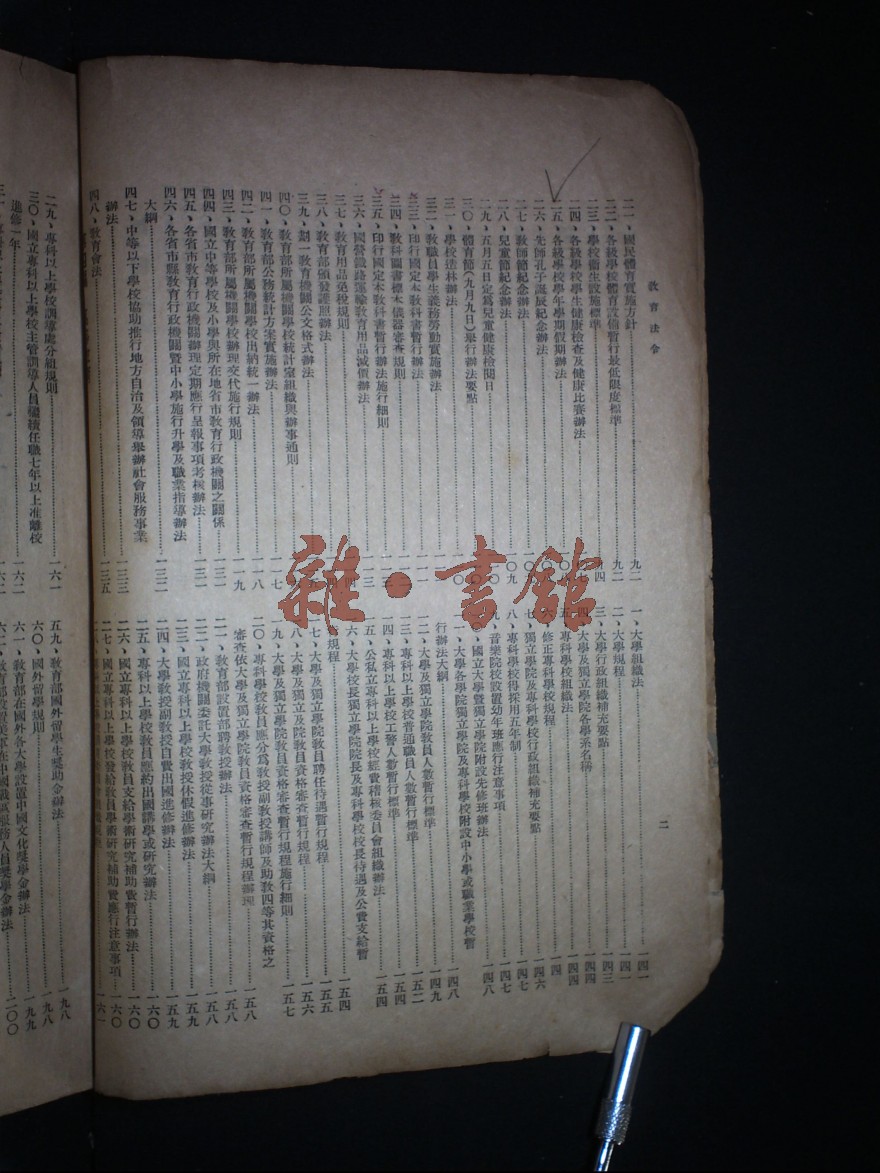 教育法令
二
二一、國民體育實施方針 九一
二二、各級學校體育設備暫行最低限度標準 九二
二三、學校衞生設施標準 九四
二四、各級學校學生健康檢查及健康比賽辦法
二五、各級學校學年學期假期辦法
二六、先師孔子誕辰紀念辦法
二七、教師節紀念辦法
二八、兒童節紀念辦法 一〇九
二九、五月五日定爲兒童健康檢閱日
三〇、體育節(九月九日)舉行辦法要點
三一、學校造林辦法
三二、教職員學生義務勞動實施辦法
三三、印行國定本教科書暫行辦法
三四、教科圖書標本儀器審查規則
三五、印行國定本教科書暫行辦法施行細則
三六、國營鐵路運輸教育用品減價辦法 一一三
三七、教育用品免稅規則
三八、教育部頒發護照辦法
三九、劃一教育機關公文格式辦法
四〇、教育部所屬機關學校統計室組織與辦事通則
四一、教育部公務統計方案實施辦法 一一七
四二、教育部所屬機關學校出納統一辦法 一一八
四三、教育部所屬機關學校辦理交代施行規則 一一九
四四、國立中等學校及小學與所在地省市教育行政機關之關係
四五、各省市教育行政機關辦理定期應行呈報事項考核辦法 一三一
四六、各省市縣教育行政機關暨中小學施行升學及職業指導辦法
大綱 一三二
四七、中等以下學校協助推行地方自治及領導舉辦社會服務事業
辦法 一三三
四八、教育會法 一三五
一、大學組織法 一四一
二、大學規程 一四一
三、大學行政組織補充要點 一四三
四、大學及獨立學院各學系名稱 一四四
五、專科學校組織法 一四四
六、修正專科學校規程
七、獨立學院及專科學校行政組織補充要點 一四六
八、專科學校得採用五年制 一四七
九、音樂院校設置幼年班應行注意事項 一四七
一〇、國立大學暨獨立學院附設先修班辦法 一四八
一一、大學各學院獨立學院及專科學校附設中小學或職業學校暫
行辦法大綱 一四八
一二、大學及獨立學院教員人數暫行標準 一四九
一三、專科以上學校普通職員人數暫行標準 一五二
一四、專科以上學校工警人數暫行標準 一五四
一五、公私立專科以上學校經費稽核委員會組織辦法 一五四
一六、大學校長獨立學院院長及專科學校校長待遇及公費支給暫
行規程 一五四
一七、大學及獨立學院教員聘任待遇暫行規程 一五五
一八、大學及獨立學院教員資格審查暫行規程 一五六
一九、大學及獨立學院教員資格審查暫行規程施行細則 一五七
二〇、專科學校教員應分爲教授副教授講師及助教四等其資格之
審查依大學及獨立學院教員資格審查暫行規程辦理 一五八
二一、教育部設置部聘教授辦法 一五八
二二、政府機關委託大學教授從事研究辦法大綱 一五八
二三、國立專科以上學校教授休假進修辦法 一五九
二四、大學教授副教授自費出國進修辦法 一五九
二五、專科以上學校教員應約出國講學或研究辦法 一六〇
二六、國立專科以上學校教員支給學術研究補助費暫行辦法 一六〇
二七、國立專科以上學校發給教員學術研究補助費應行注意事項 一六〇
二九、專科以上學校訓導處分組規則 一六一
三〇、國立專科以上學校主管訓導人員繼續任職七年以上准離校
進修一年 一六二
五九、教育部國外留學生獎助金辦法 一九八
六〇、國外留學規則 一九九
六一、教育部在國外各大學設置中國文化獎學金辦法 一九九
雜·書館